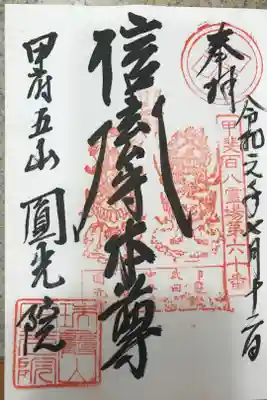 奉拝
令和元年七月十二日
甲斐百八霊場第六十番
信玄守本尊
甲府五山 圓光院